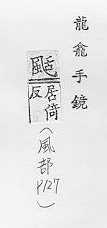 龍龕手鏡
居倚
反
（風部
P127）